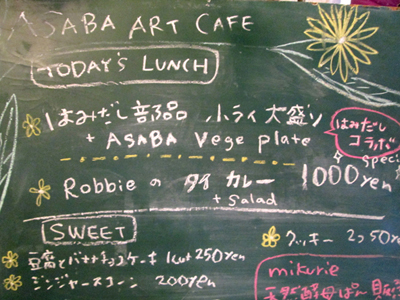 ASABA ART CAFE
TODAY'S LUNCH
はみだし 部品 ホライ 大盛り
+ ASABA Vege plate
はみだし
コラボ
special
1000yen
Robbie の タイ カレー
+ salad
SWEET
豆腐とバナナチョコケーキ 1cut 250yen
ジンジャースコーン 200yen
クッキー 2コ 50yen
mikurie
天然酵母ぱん 販売